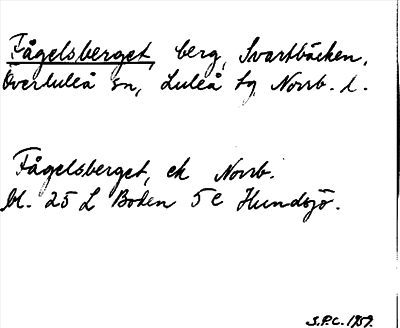 Fågelsberget, berg, Svartbäcken,
Överluleå sn, Luleå tg Norrb. l.
Fågelsberget, ek Norrb.
bl. 25 L Boden 5 e Hundsjö.
S.P.C. 1959.